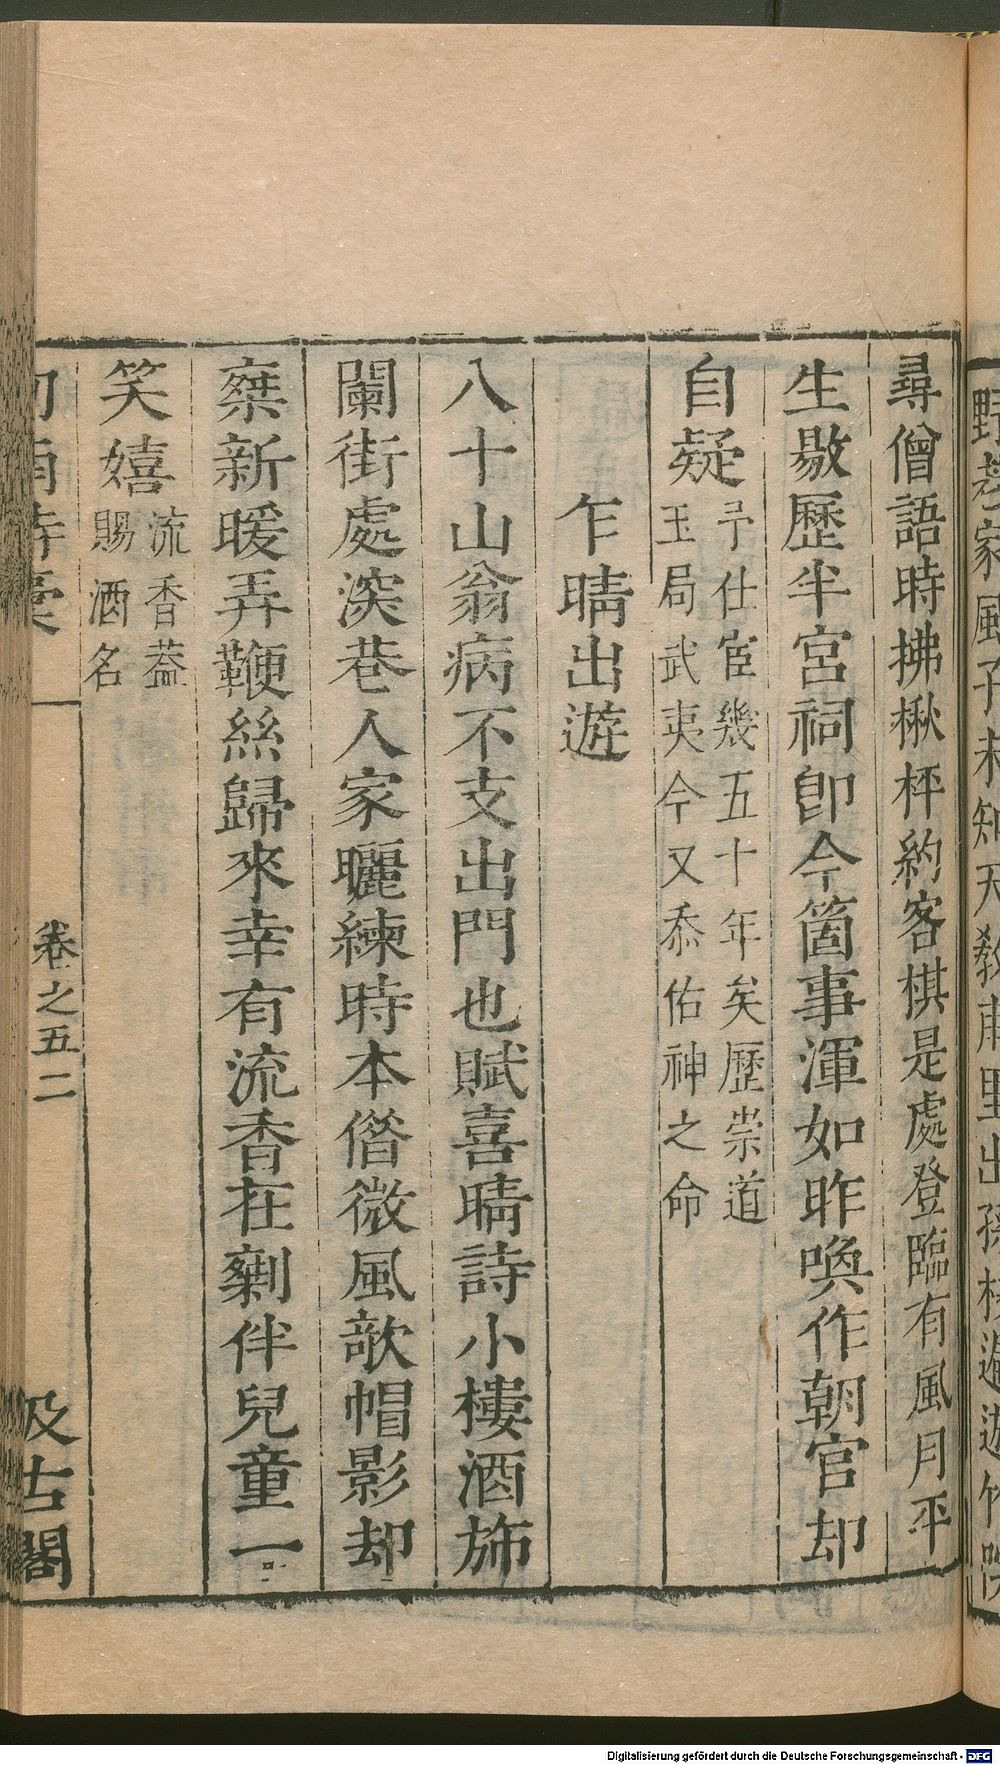 野
家風子未知天教甫里出孫
尋僧語時拂楸枰約客棋是處登臨有風月平
生敭歷半宮祠卽今箇事渾如昨喚作朝官却
自疑
予仕宦幾五十年矣歷崇道
玉局武夷今又忝佑神之命
乍晴出遊
八十山翁病不支出門也賦喜晴詩小樓酒斾
闌街處深巷人家曬練時本借微風欹帽影却
乘新暖弄鞭絲歸來幸有流香在剩伴兒童一
笑嬉
流香葢
賜酒名
卷之五
二
汲古閣
Digitalisierung gefördert durch die Deutsche Forschungsgemeinschaft - DFG